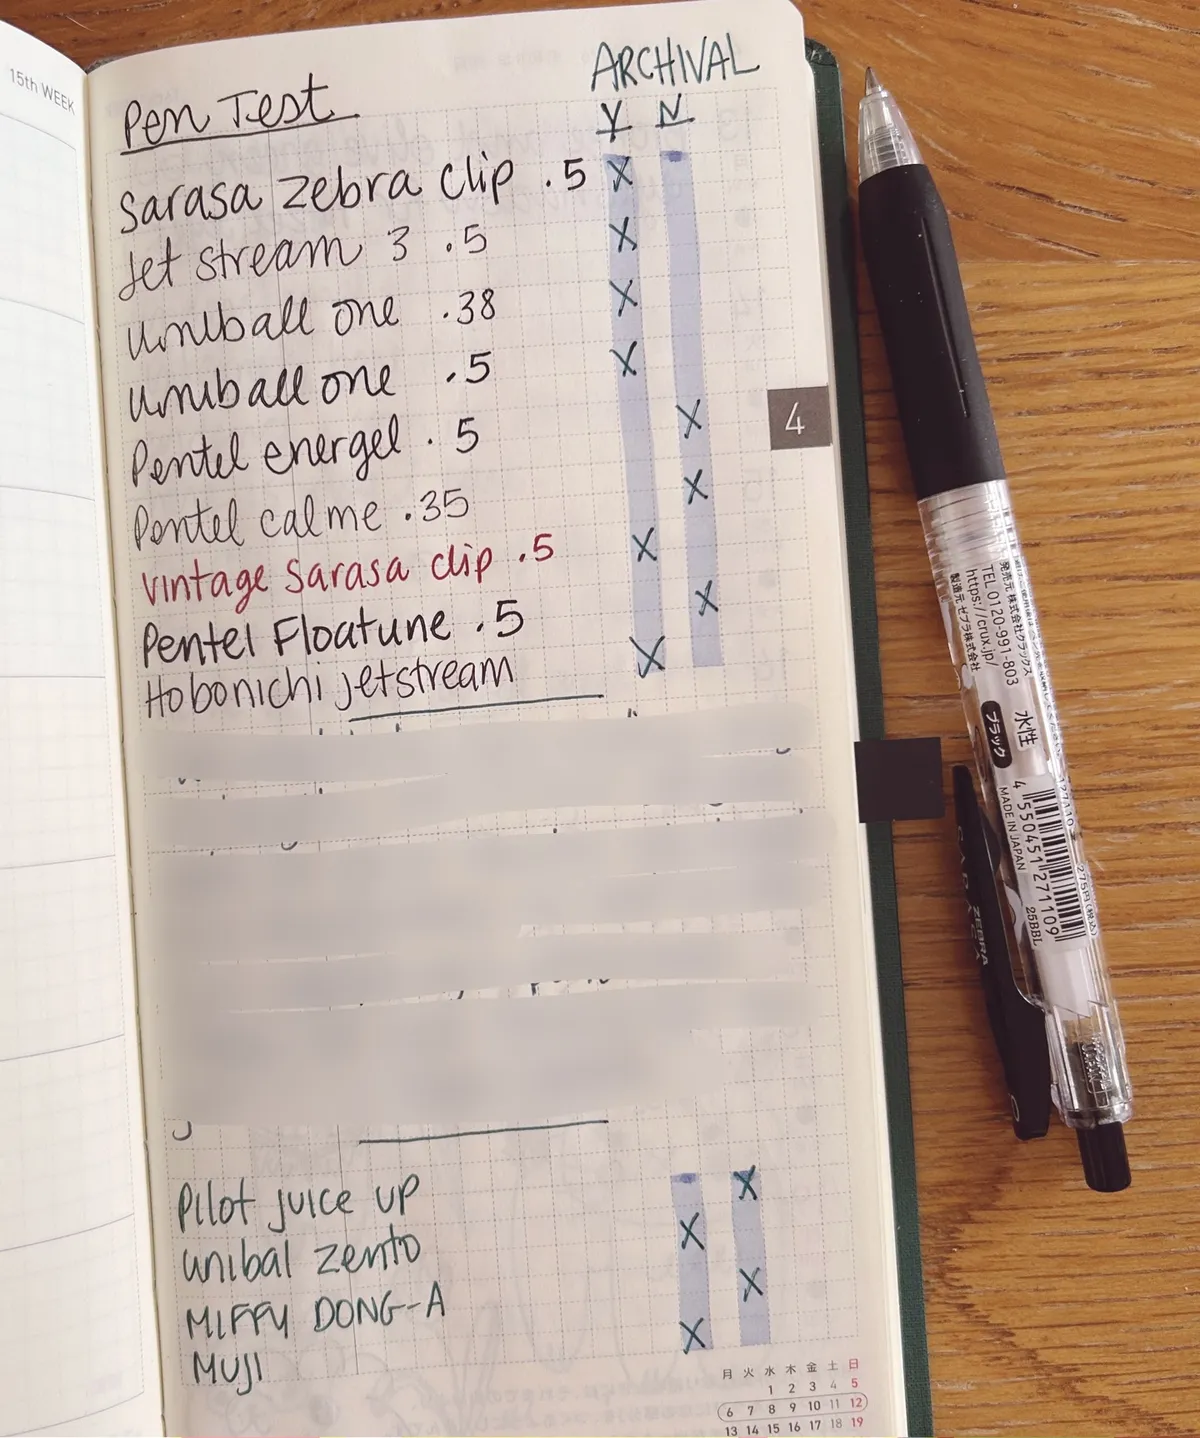 15th WEEK
Pen Test
ARCHIVAL
Y N
Sarasa Zebra Clip .5 X
Jet stream 3 .5 X
Uniball one .38 X
Uniball one .5 X
Pentel energel .5 X
Pentel calme .35 X
Vintage Sarasa clip .5 X
Pentel Floatune .5 X
Hobonichi jetstream X
4
Pilot juice up X
unibal zento X
MIFFY DONG-A X
MUJI X
月 火 水 木 金 土 日
1 2 3 4 5
6 7 8 9 10 11 12
13 14 15 16 17 18 19
発売元 株式会社クラックス
TEL 0120-991-803
https://crux.jp/
製造元 ゼブラ株式会社
水性
ブラック
MADE IN JAPAN
4 550451 271109
275円(税込)
25BBL
ZEBRA